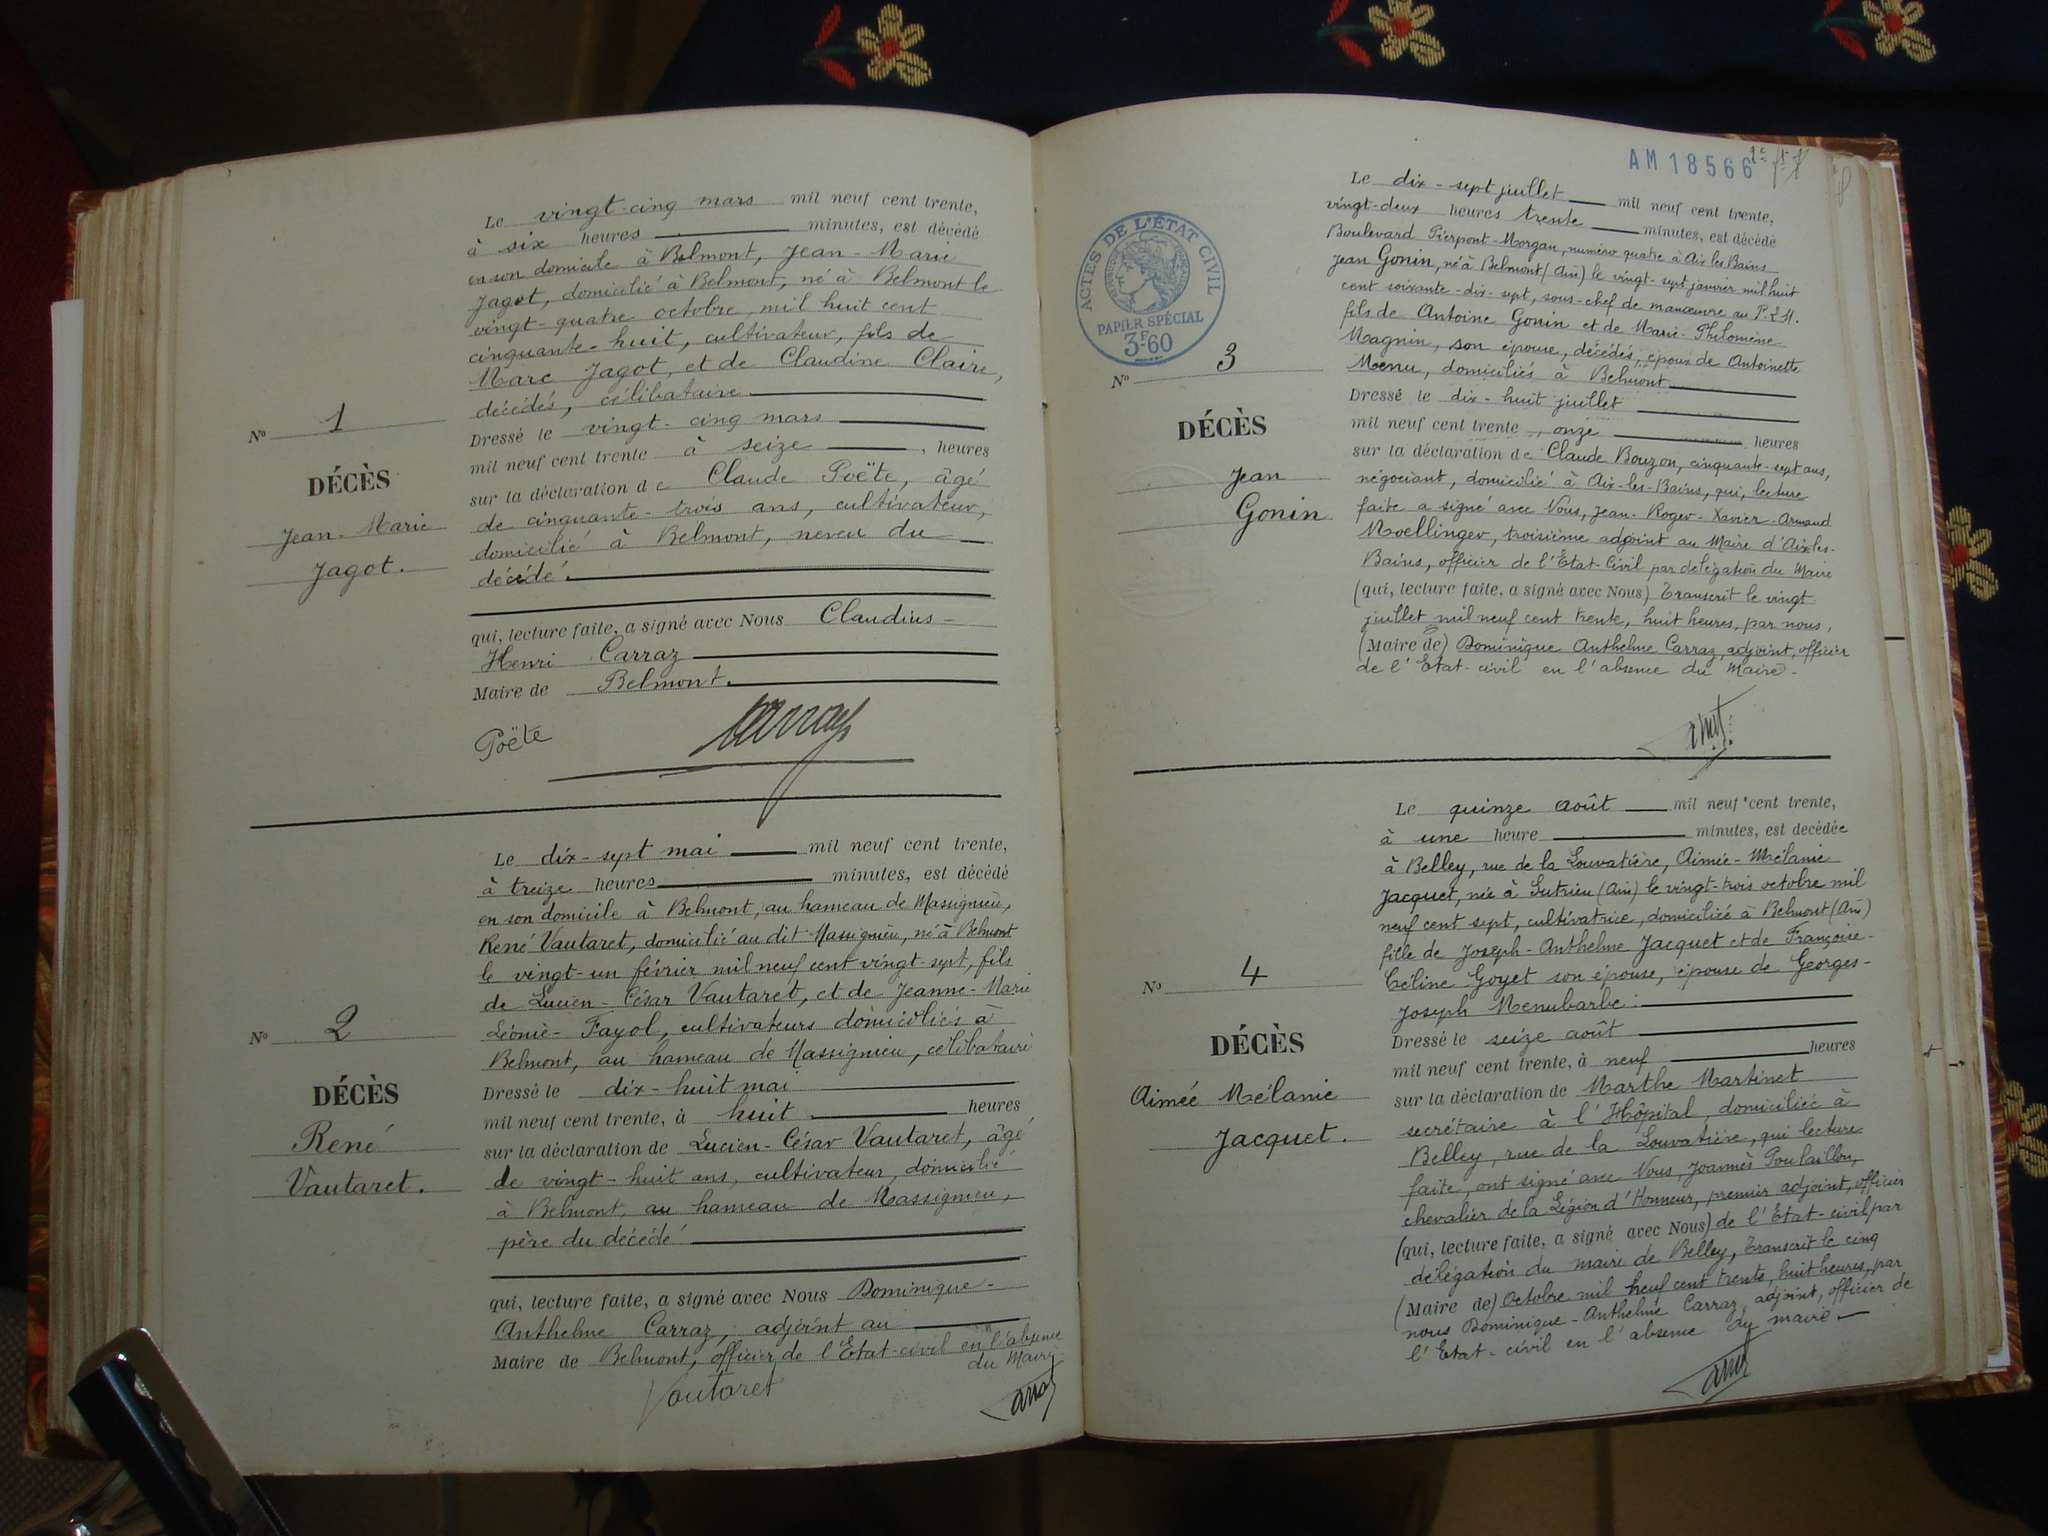 Le vingt-cinq mars mil neuf cent trente,
à six heures minutes, est décédé
en son domicile à Belmont, Jean-Marie
Jagot, domicilié à Belmont, né à Belmont le
vingt-quatre octobre, mil huit cent
cinquante-huit, cultivateur, fils de
Marc Jagot, et de Claudine Claire,
décédés, célibataire
N° 1
DÉCÈS
Jean-Marie
Jagot.
Dressé le vingt-cinq mars
mil neuf cent trente à seize, heures
sur la déclaration de Claude Poëte, âgé
de cinquante-trois ans, cultivateur,
domicilié à Belmont, neveu du
décédé.
qui, lecture faite, a signé avec Nous Claudius-
Henri Carraz
Maire de Belmont.
Poëte
Carraz
Le dix-sept mai mil neuf cent trente,
à treize heures minutes, est décédé
en son domicile à Belmont, au hameau de Massignieu,
René Vautaret, domicilié au dit Massignieu, né à Belmont
le vingt-un février mil neuf cent vingt-sept, fils
de Lucien-César Vautaret, et de Jeanne-Marie
Léonie-Fayol, cultivateurs domiciliés à
Belmont, au hameau de Massignieu, célibataire
N° 2
DÉCÈS
René
Vautaret.
Dressé le dix-huit mai
mil neuf cent trente, à huit heures
sur la déclaration de Lucien-César Vautaret, âgé
de vingt-huit ans, cultivateur, domicilié
à Belmont, au hameau de Massignieu,
père du décédé
qui, lecture faite, a signé avec Nous Dominique-
Anthelme Carraz, adjoint au
Maire de Belmont, officier de l'Etat-civil en l'absence
du Maire
Vautaret
AM 18566
ACTES DE L'ÉTAT CIVIL
PAPIER SPÉCIAL
3F60
Le dix-sept juillet mil neuf cent trente,
vingt-deux heures trente minutes, est décédé
Boulevard Pierpont-Morgan, numéro quatre à Aix les Bains
Jean Gonin, né à Belmont (Ain) le vingt-sept janvier mil huit
cent soixante-dix-sept, sous-chef de manœuvre au P.L.M.
fils de Antoine Gonin et de Marie-Philomène
Magnin, son épouse, décédés, époux de Antoinette
Menu, domiciliés à Belmont
N° 3
DÉCÈS
Jean
Gonin
Dressé le dix-huit juillet
mil neuf cent trente, onze heures
sur la déclaration de Claude Bouzon, cinquante-sept ans,
négociant, domicilié à Aix-les-Bains, qui, lecture
faite a signé avec Nous, Jean-Roger-Xavier-Armand
Moellinger, troisième adjoint au Maire d'Aix-les-
Bains, officier de l'Etat-Civil par délégation du Maire
(qui, lecture faite, a signé avec Nous) Transcrit le vingt
juillet mil neuf cent trente, huit heures, par nous,
(Maire de) Dominique Anthelme Carraz, adjoint, officier
de l'Etat-civil en l'absence du Maire.
Le quinze août mil neuf cent trente,
à une heure minutes, est décédée
à Belley, rue de la Louvatière, Aimée-Mélanie
Jacquet, née à Sutrieu (Ain) le vingt-trois octobre mil
neuf cent sept, cultivatrice, domiciliée à Belmont (Ain)
fille de Joseph-Anthelme Jacquet et de Françoise-
Céline Goyet son épouse, épouse de Georges-
Joseph Menubarbe.
N° 4
DÉCÈS
Aimée Mélanie
Jacquet.
Dressé le seize août
mil neuf cent trente, à neuf heures
sur la déclaration de Marthe Martinet
secrétaire à l'Hôpital, domiciliée à
Belley, rue de la Louvatière, qui lecture
faite, ont signé avec Nous, Joannès Poulaillon,
chevalier de la Légion d'Honneur, premier adjoint, officier
(qui, lecture faite, a signé avec Nous) de l'Etat-civil par
délégation du maire de Belley, Transcrit le cinq
(Maire de) Octobre mil neuf cent trente, huit heures, par
nous Dominique-Anthelme Carraz, adjoint, officier de
l'Etat-civil en l'absence du maire.